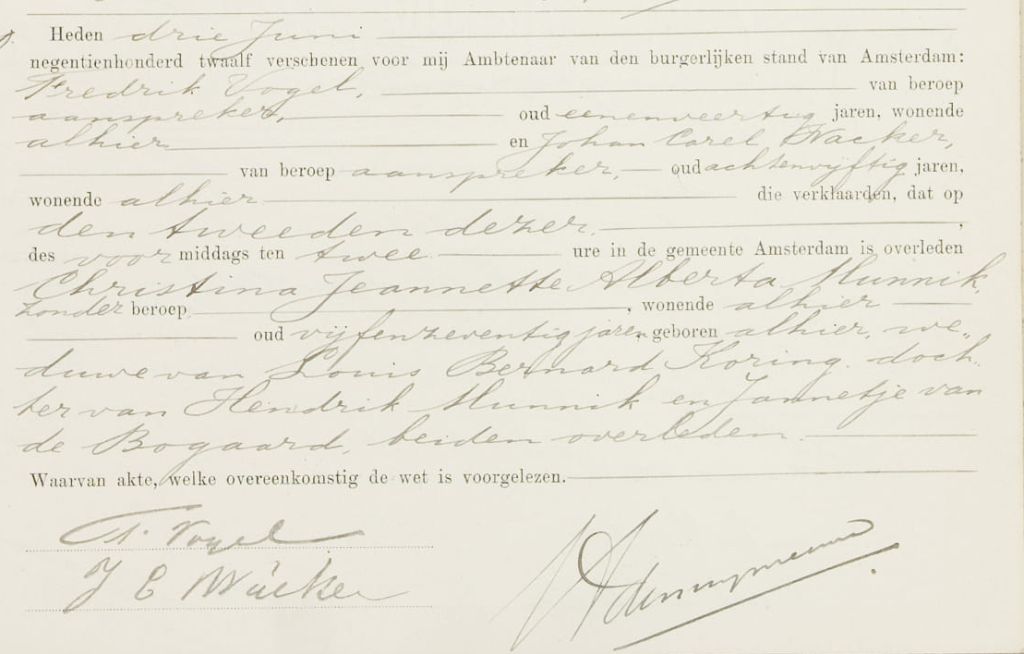 Heden drie Juni
negentienhonderd twaalf verschenen voor mij Ambtenaar van den burgerlijken stand van Amsterdam:
Fredrik Vogel, van beroep
aanspreker, oud eenenveertig jaren, wonende
alhier en Johan Carel Wacker,
van beroep aanspreker, oud achtenvijftig jaren,
wonende alhier die verklaarden, dat op
den tweeden dezer,
des voor middags ten twee ure in de gemeente Amsterdam is overleden
Christina Jeannette Alberta Munnik,
zonder beroep, wonende alhier
oud vijfenzeventig jaren, geboren alhier, we„
duwe van Louis Bernard Koring, doch„
ter van Hendrik Munnik en Jannetje van
de Bogaard, beiden overleden.
Waarvan akte, welke overeenkomstig de wet is voorgelezen.
F. Vogel
J C Wäcker